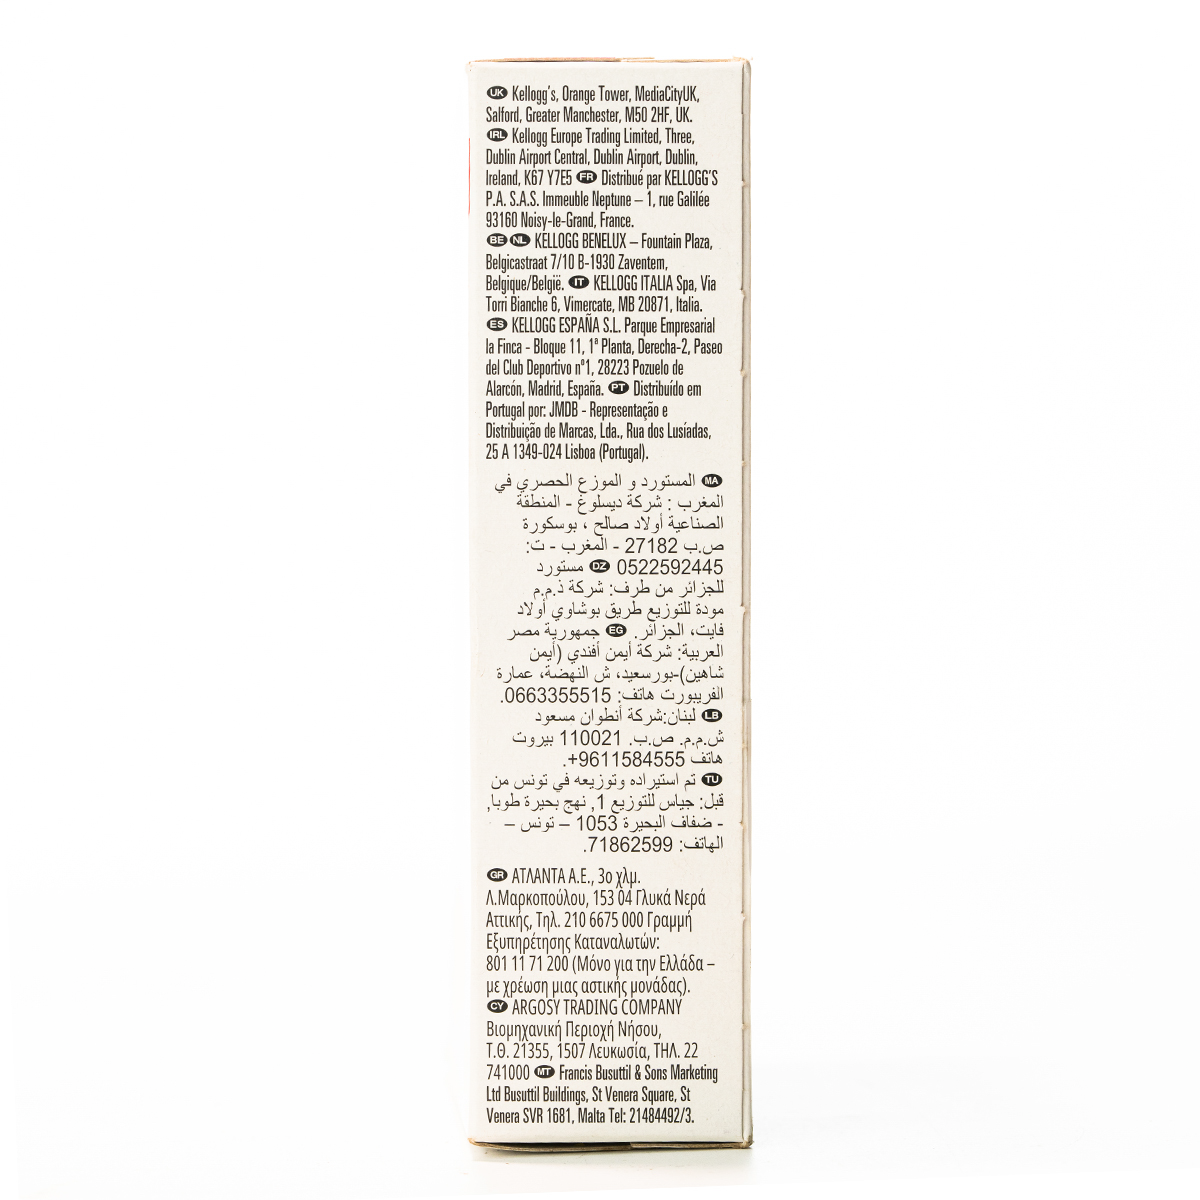 UK Kellogg's, Orange Tower, MediaCityUK,
Salford, Greater Manchester, M50 2HF, UK.
IRL Kellogg Europe Trading Limited, Three,
Dublin Airport Central, Dublin Airport, Dublin,
Ireland, K67 Y7E5 FR Distribué par KELLOGG'S
P.A. S.A.S. Immeuble Neptune – 1, rue Galilée
93160 Noisy-le-Grand, France.
BE NL KELLOGG BENELUX – Fountain Plaza,
Belgicastraat 7/10 B-1930 Zaventem,
Belgique/België. IT KELLOGG ITALIA Spa, Via
Torri Bianche 6, Vimercate, MB 20871, Italia.
ES KELLOGG ESPAÑA S.L. Parque Empresarial
la Finca - Bloque 11, 1ª Planta, Derecha-2, Paseo
del Club Deportivo nº1, 28223 Pozuelo de
Alarcón, Madrid, España. PT Distribuído em
Portugal por: JMDB - Representação e
Distribuição de Marcas, Lda., Rua dos Lusíadas,
25 A 1349-024 Lisboa (Portugal).
MA المستورد و الموزع الحصري في
المغرب : شركة ديسلوغ - المنطقة
الصناعية أولاد صالح ، بوسكورة
ص.ب 27182 - المغرب - ت:
0522592445 DZ مستورد
للجزائر من طرف: شركة ذ.م.م
مودة للتوزيع طريق بوشاوي أولاد
فايت، الجزائر. EG جمهورية مصر
العربية: شركة أيمن أفندي (أيمن
شاهين)-بورسعيد، ش النهضة، عمارة
الفريبورت هاتف: 0663355515.
LB لبنان:شركة أنطوان مسعود
ش.م.م. ص.ب. 110021 بيروت
هاتف 9611584555+.
TU تم استيراده وتوزيعه في تونس من
قبل: جياس للتوزيع 1, نهج بحيرة طوبا,
- ضفاف البحيرة 1053 – تونس –
الهاتف: 71862599.
GR ΑΤΛΑΝΤΑ Α.Ε., 3ο χλμ.
Λ.Μαρκοπούλου, 153 04 Γλυκά Νερά
Αττικής, Τηλ. 210 6675 000 Γραμμή
Εξυπηρέτησης Καταναλωτών:
801 11 71 200 (Μόνο για την Ελλάδα –
με χρέωση μιας αστικής μονάδας).
CY ARGOSY TRADING COMPANY
Βιομηχανική Περιοχή Νήσου,
Τ.Θ. 21355, 1507 Λευκωσία, ΤΗΛ. 22
741000 MT Francis Busuttil & Sons Marketing
Ltd Busuttil Buildings, St Venera Square, St
Venera SVR 1681, Malta Tel: 21484492/3.